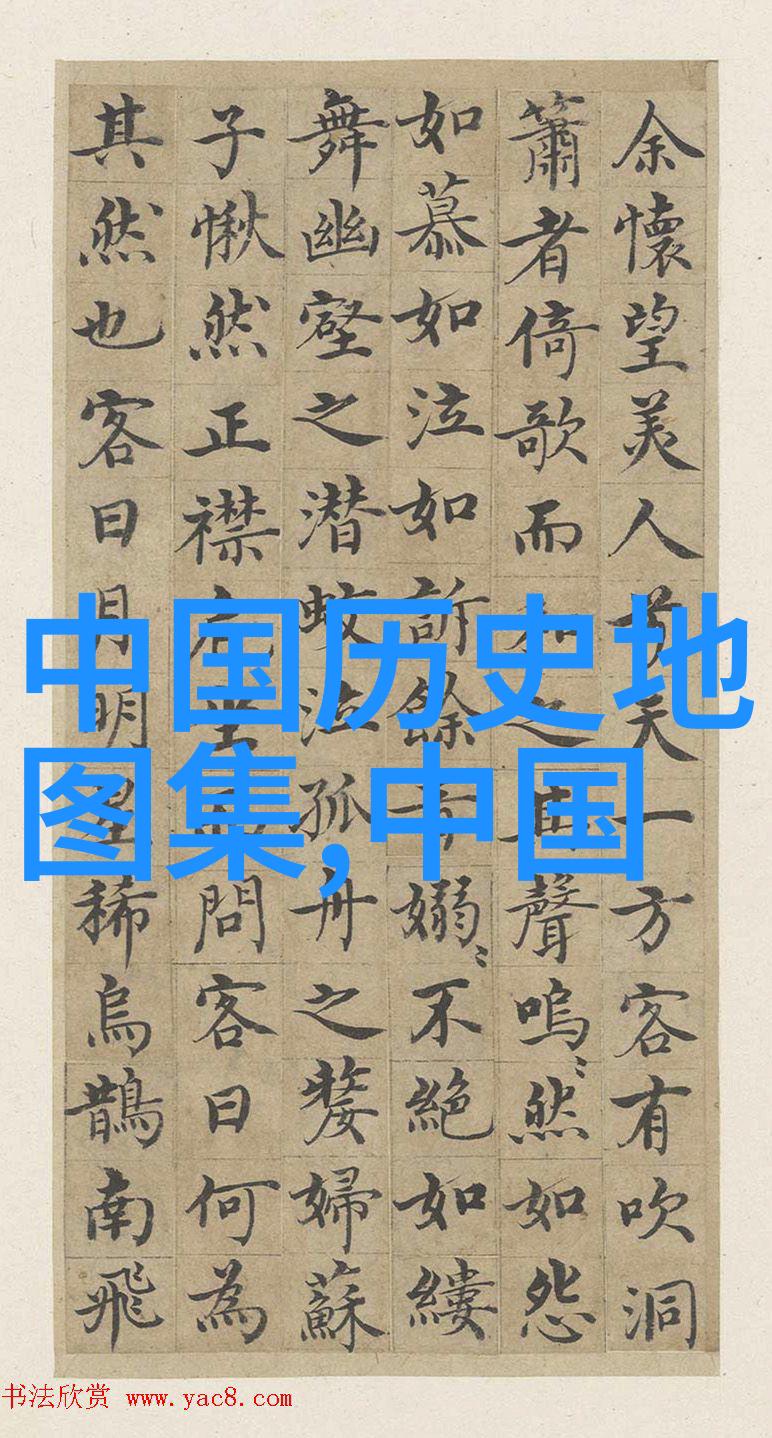 余懷望美人兮天一方客有吹洞
簫者倚歌而和之其聲嗚〻然如怨
如慕如泣如訴餘音嫋〻不絕如縷
舞幽壑之潛蛟泣孤舟之嫠婦蘇
子愀然正襟危坐而問客曰何為
其然也客曰月明星稀烏鵲南飛
中国历史地
图集,中国
书法欣赏 www.yac8.com